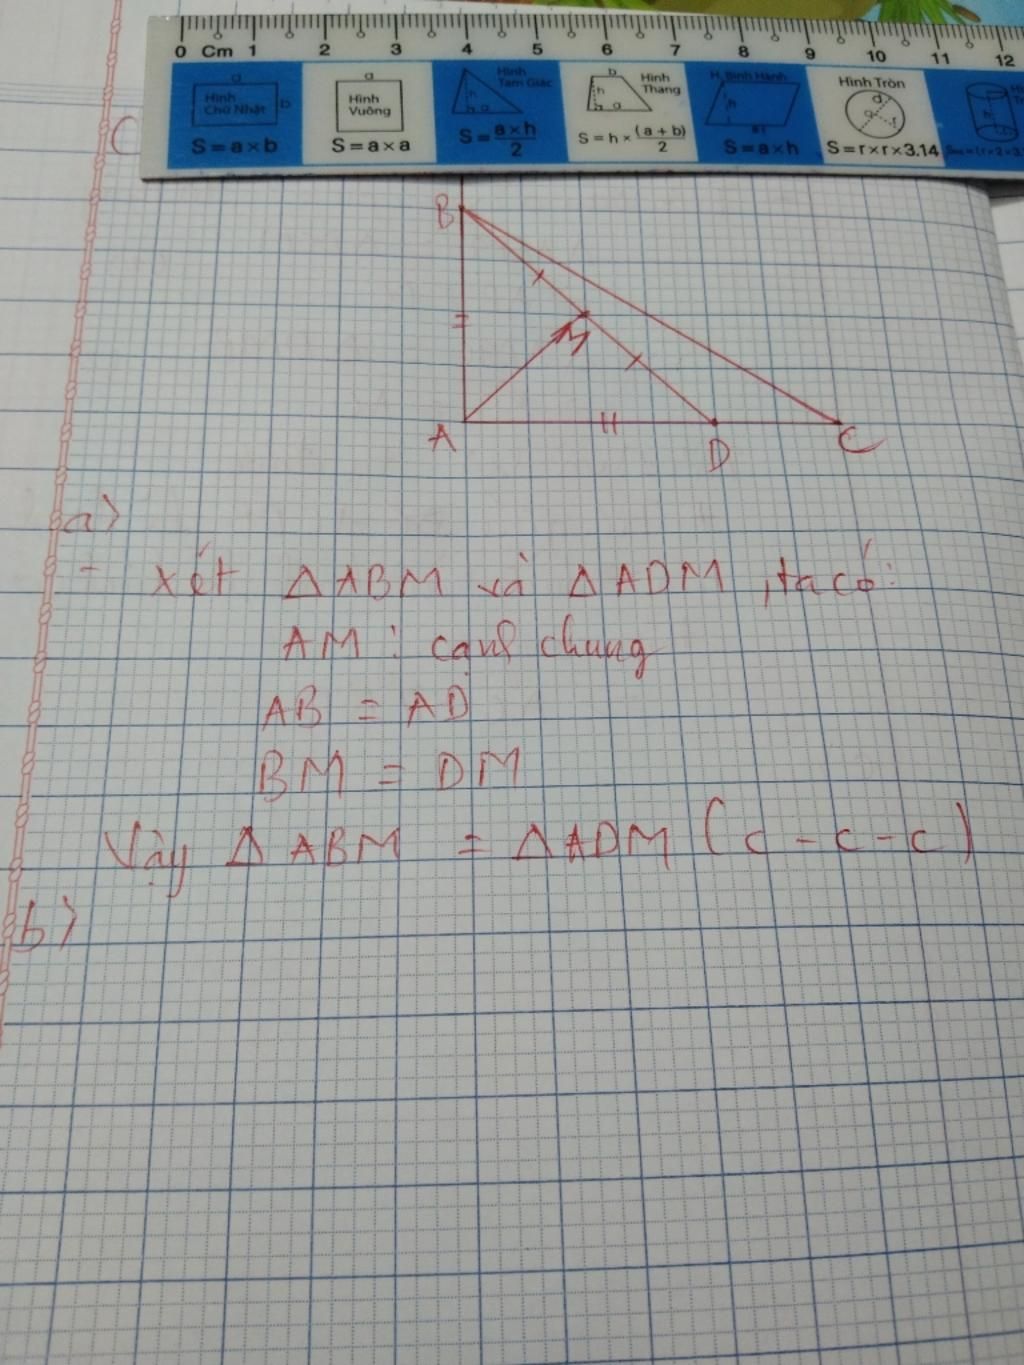 0 Cm 1 2 3 4 5 6 7 8 9 10 11 12
a
Hình
Chữ Nhật
b
S=a×b
a
Hình
Vuông
S=a×a
Hình
Tam Giác
h
a
S=a×h/2
b
Hình
Thang
h
a
S=h×(a+b)/2
H. Bình Hành
h
S=a×h
Hình Tròn
d
r
S=r×r×3.14
B
M
A
D
C
a)
- xét ΔABM và ΔADM, ta có:
AM : cạnh chung
AB = AD
BM = DM
Vậy ΔABM = ΔADM (c-c-c)
b)